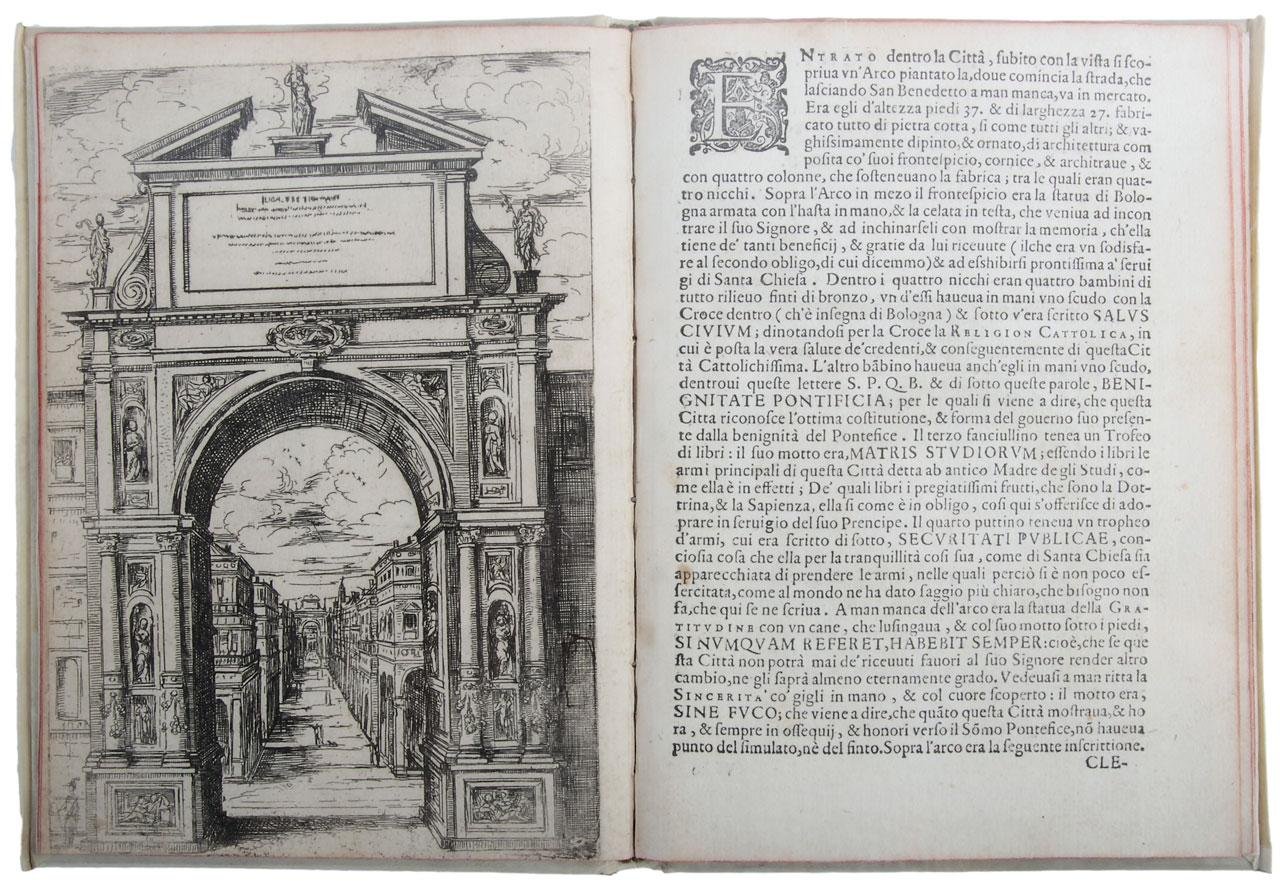 ENTRATO dentro la Città, ſubito con la viſta ſi ſco-
priua vn'Arco piantato la, doue comincia la ſtrada, che
laſciando San Benedetto a man manca, va in mercato.
Era egli d'altezza piedi 37. & di larghezza 27. fabri-
cato tutto di pietra cotta, ſi come tutti gli altri; & va-
ghiſſimamente dipinto, & ornato, di architettura com
poſita co' ſuoi fronteſpicio, cornice, & architraue, &
con quattro colonne, che ſoſteneuano la fabrica; tra le quali eran quat-
tro nicchi. Sopra l'Arco in mezo il fronteſpicio era la ſtatua di Bolo-
gna armata con l'haſta in mano, & la celata in teſta, che veniua ad incon
trare il ſuo Signore, & ad inchinarſeli con moſtrar la memoria, ch'ella
tiene de' tanti beneficij, & gratie da lui riceuute (ilche era vn ſodisfa-
re al ſecondo obligo, di cui dicemmo) & ad eſshibirſi prontiſſima a' ſerui
gi di Santa Chieſa. Dentro i quattro nicchi eran quattro bambini di
tutto rilieuo finti di bronzo, vn d'eſſi haueua in mani vno ſcudo con la
Croce dentro (ch'è inſegna di Bologna) & ſotto v'era ſcritto SALVS
CIVIVM; dinotandoſi per la Croce la RELIGION CATTOLICA, in
cui è poſta la vera ſalute de' credenti, & conſeguentemente di queſta Cit
tà Cattolichiſſima. L'altro bābino haueua anch'egli in mani vno ſcudo,
dentroui queſte lettere S. P. Q. B. & di ſotto queſte parole, BENI-
GNITATE PONTIFICIA; per le quali ſi viene a dire, che queſta
Citta riconoſce l'ottima coſtitutione, & forma del gouerno ſuo preſen-
te dalla benignità del Pontefice. Il terzo fanciullino tenea un Trofeo
di libri: il ſuo motto era, MATRIS STVDIORVM; eſſendo i libri le
armi principali di queſta Città detta ab antico Madre degli Studi, co-
me ella è in effetti; De' quali libri i pregiatiſſimi frutti, che ſono la Dot-
trina, & la Sapienza, ella ſi come è in obligo, coſi qui s'offeriſce di ado-
prare in ſeruigio del ſuo Prencipe. Il quarto puttino teneua vn tropheo
d'armi, cui era ſcritto di ſotto, SECVRITATI PVBLICAE, con-
cioſia coſa che ella per la tranquillità coſi ſua, come di Santa Chieſa ſia
apparecchiata di prendere le armi, nelle quali perciò ſi è non poco eſ-
ſercitata, come al mondo ne ha dato ſaggio più chiaro, che biſogno non
fa, che qui ſe ne ſcriua. A man manca dell'arco era la ſtatua della GRA-
TITVDINE con vn cane, che luſingaua, & col ſuo motto ſotto i piedi,
SI NVMQVAM REFERET, HABEBIT SEMPER: cioè, che ſe que
ſta Città non potrà mai de' riceuuti fauori al ſuo Signore render altro
cambio, ne gli ſaprà almeno eternamente grado. Vedeuaſi a man ritta la
SINCERITA' co' gigli in mano, & col cuore ſcoperto: il motto era,
SINE FVCO; che viene a dire, che quāto queſta Città moſtraua, & ho
ra, & ſempre in oſſequij, & honori verſo il Sōmo Pontefice, nō haueua
punto del ſimulato, nè del finto. Sopra l'arco era la ſeguente inſcrittione.
CLE-